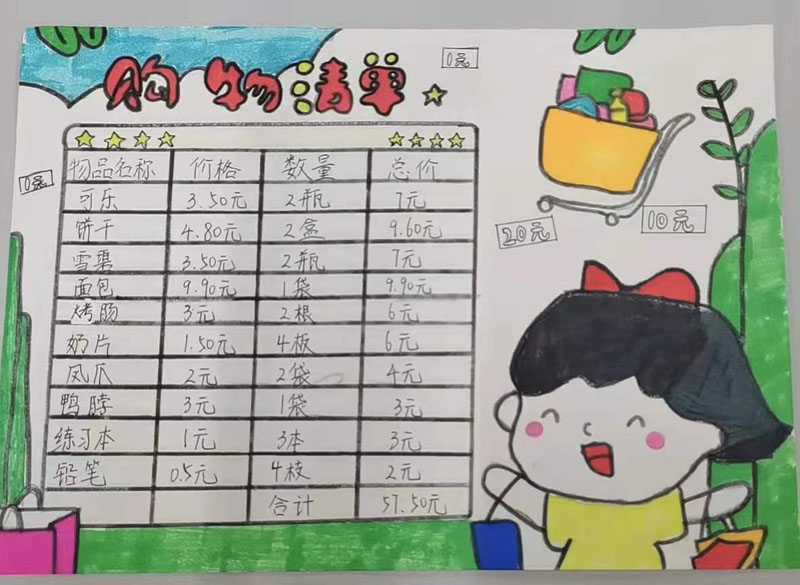 购物清单
10元
10元
物品名称 价格 数量 总价
可乐 3.50元 2瓶 7元
饼干 4.80元 2盒 9.60元
雪碧 3.50元 2瓶 7元
面包 9.90元 1袋 9.90元
烤肠 3元 2根 6元
奶片 1.50元 4板 6元
凤爪 2元 2袋 4元
鸭脖 3元 1袋 3元
练习本 1元 3本 3元
铅笔 0.5元 4枝 2元
合计 57.50元
20元
10元